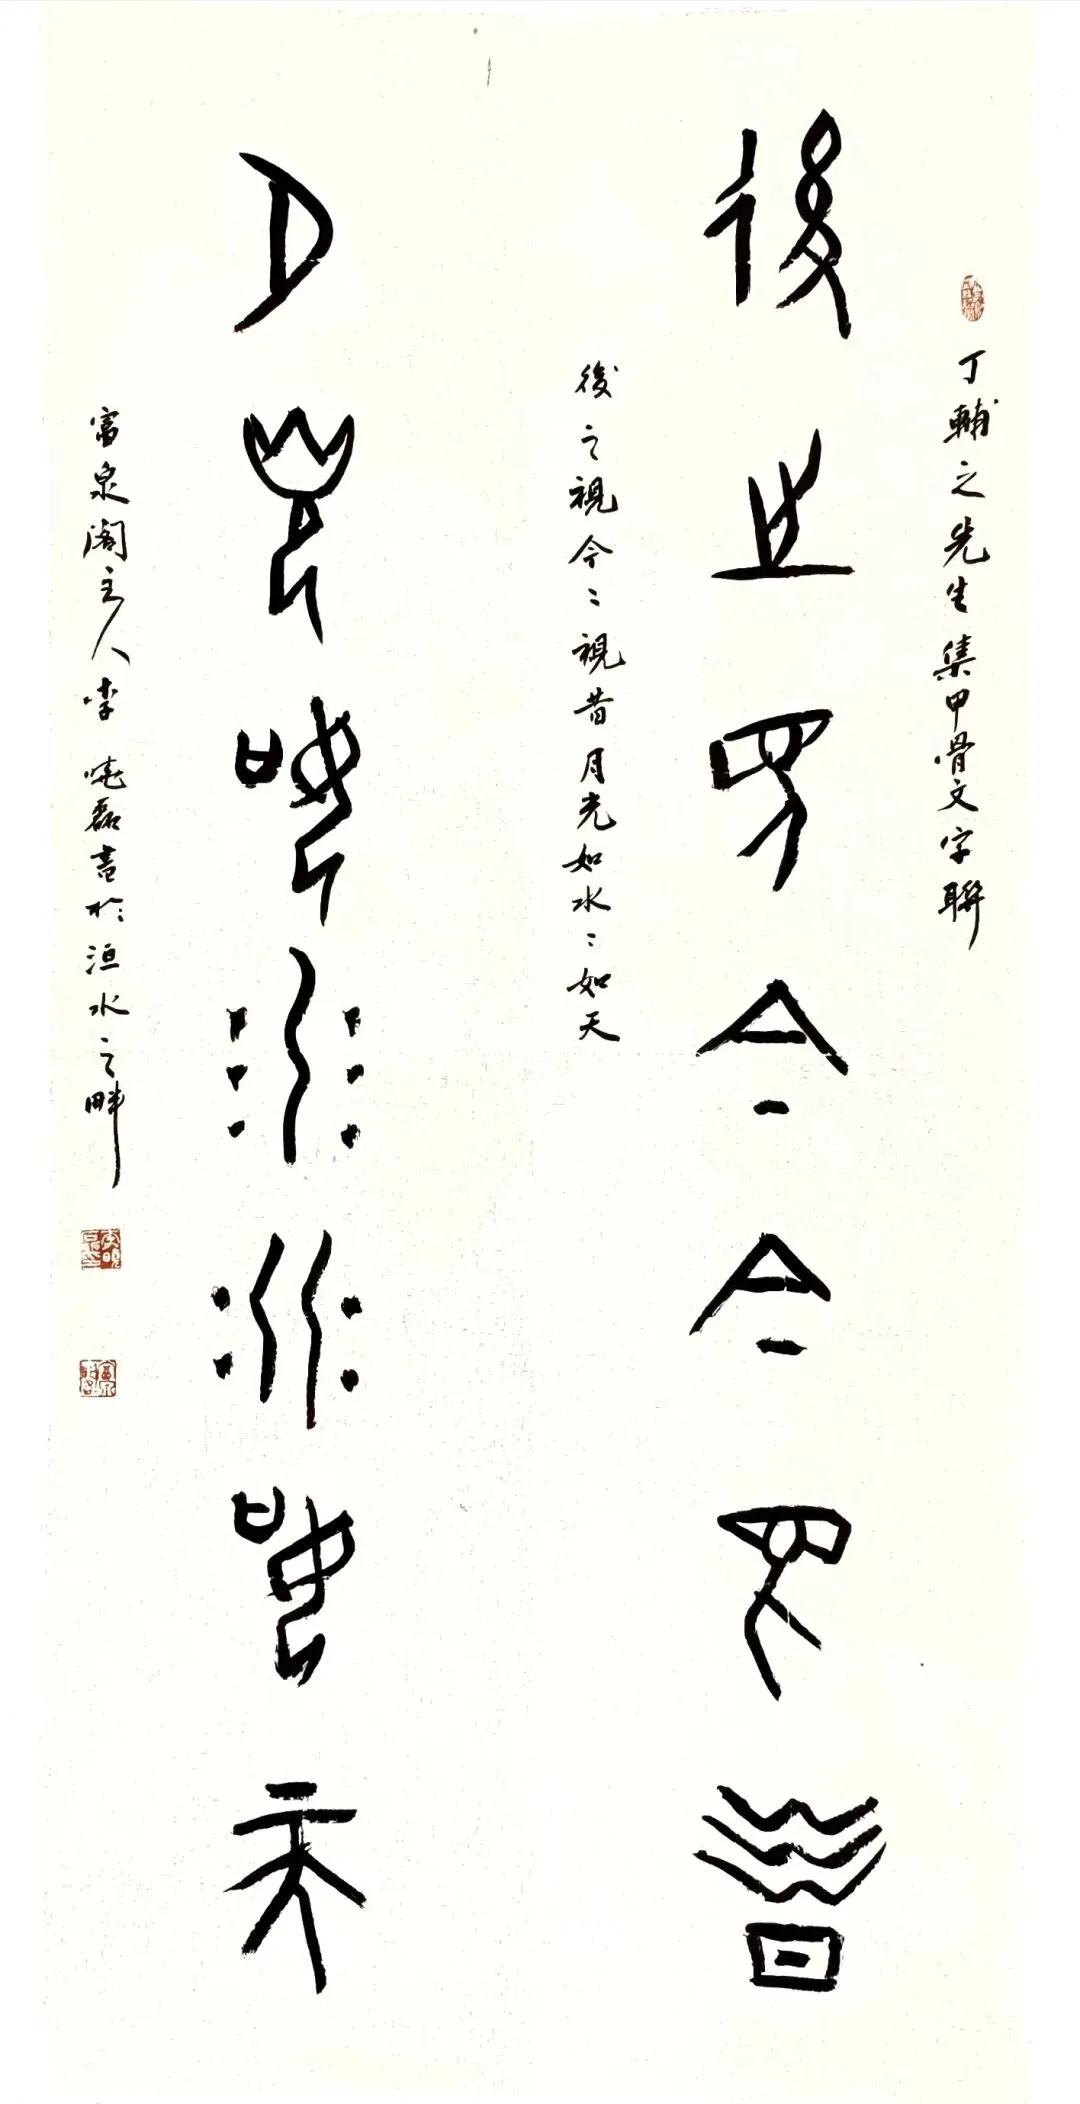 丁輔之先生集甲骨文字聯
後之視今今視昔
後之視今〻視昔月光如水〻如天
月光如水水如天
富泉閣主人李曉磊書於洹水之畔